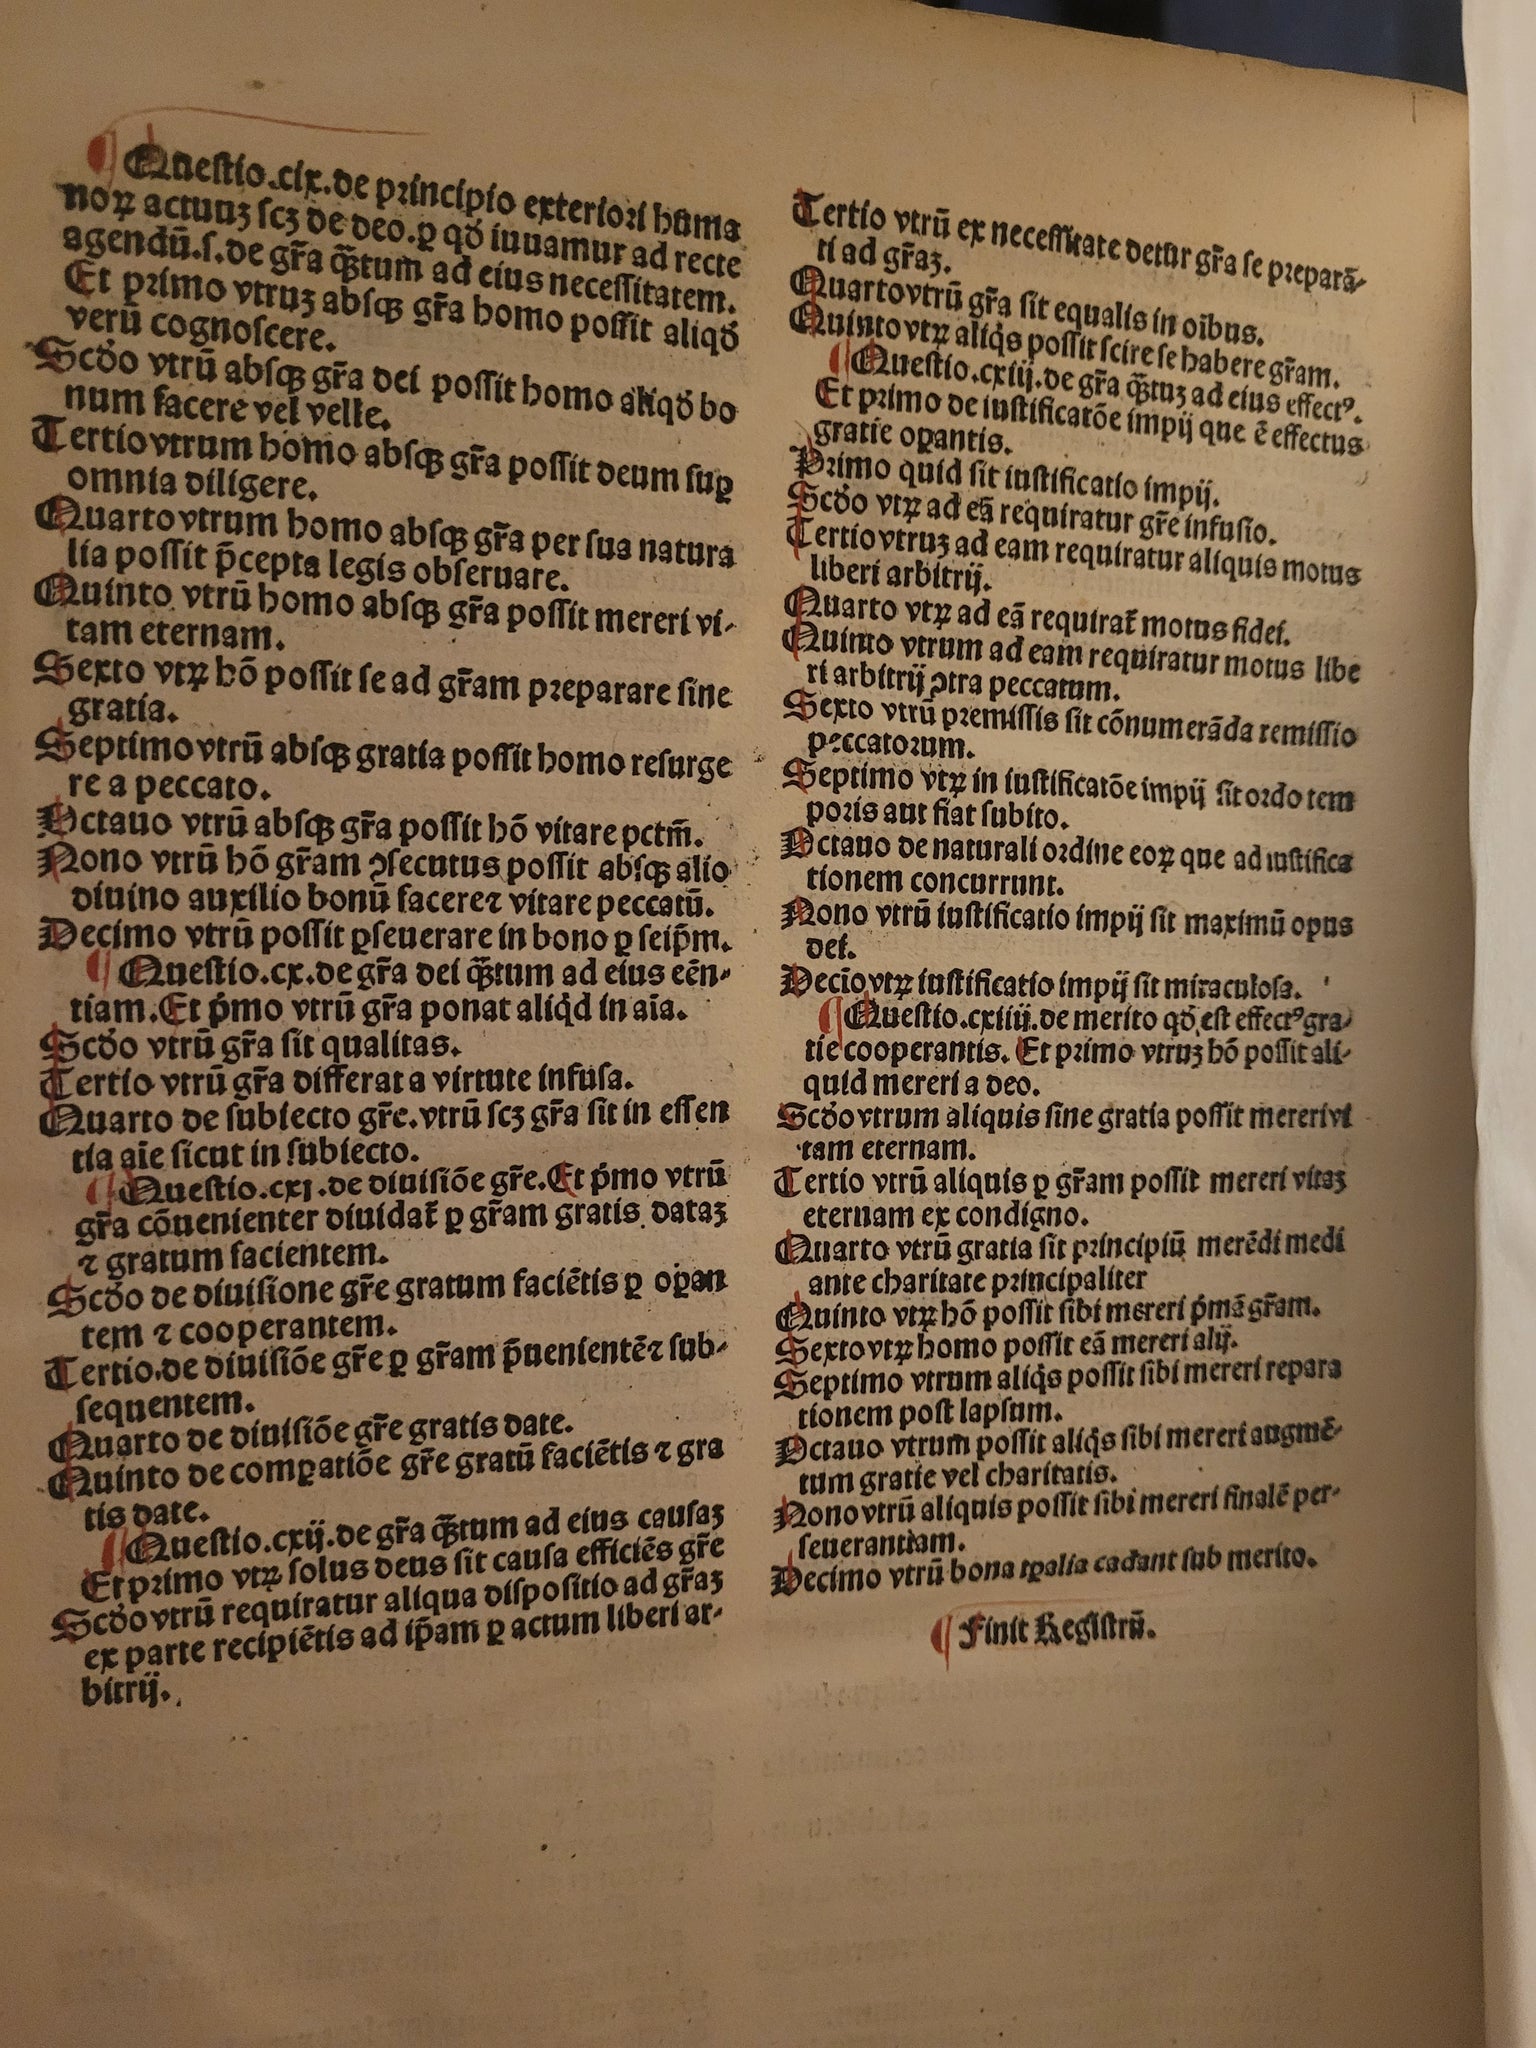 ¶ Questio.cix.de principio exteriori huma
noꝝ actuuꝫ ſcꝫ de deo.ꝑ qđ iuuamur ad recte
agendū.ſ.de gr̄a q̄ꝫtum ad eius neceſſitatem.
Et primo vtruꝫ abſqꝫ gr̄a homo poſſit aliqđ
verū cognoſcere.
Scđo vtrū abſqꝫ gr̄a dei poſſit homo aliqđ bo
num facere vel velle.
Tertio vtrum homo abſqꝫ gr̄a poſſit deum ſuꝑ
omnia diligere.
Quarto vtrum homo abſqꝫ gr̄a per ſua natura
lia poſſit p̄cepta legis obſeruare.
Quinto vtrū homo abſqꝫ gr̄a poſſit mereri vi-
tam eternam.
Sexto vtꝝ hō poſſit ſe ad gr̄am preparare ſine
gratia.
Septimo vtrū abſqꝫ gratia poſſit homo reſurge
re a peccato.
Octauo vtrū abſqꝫ gr̄a poſſit hō vitare pctm̄.
Nono vtrū hō gr̄am ꝯſecutus poſſit abſqꝫ alio
diuino auxilio bonū facere ⁊ vitare peccatū.
Decimo vtrū poſſit ꝑſeuerare in bono ꝑ ſeip̄m.
¶ Queſtio.cx.de gr̄a dei q̄ꝫtum ad eius eēn-
tiam.Et p̓mo vtrū gr̄a ponat aliq̓d in aīa.
Scđo vtrū gr̄a ſit qualitas.
Tertio vtrū gr̄a differat a virtute infuſa.
Quarto de ſubiecto gr̄e.vtrū ſcꝫ gr̄a ſit in eſſen
tia aīe ſicut in ſubiecto.
¶ Queſtio.cxj.de diuiſiōe gr̄e.Et p̓mo vtrū
gr̄a cōuenienter diuidat̄ ꝑ gr̄am gratis dataꝫ
⁊ gratum facientem.
Scđo de diuiſione gr̄e gratum faciētis ꝑ oꝑan
tem ⁊ cooperantem.
Tertio.de diuiſiōe gr̄e ꝑ gr̄am p̄uenientē ⁊ ſub-
ſequentem.
Quarto de diuiſiōe gr̄e gratis date.
Quinto de comꝑatiōe gr̄e gratū faciētis ⁊ gra
tis date.
¶ Queſtio.cxij.de gr̄a q̄ꝫtum ad eius cauſaꝫ
Et primo vtꝝ ſolus deus ſit cauſa efficiēs gr̄e
Scđo vtrū requiratur aliqua diſpoſitio ad gr̄aꝫ
ex parte recipiētis ad ip̄am ꝑ actum liberi ar-
bitrij.
Tertio vtrū ex neceſſitate detur gr̄a ſe preparā-
ti ad gr̄aꝫ.
Quarto vtrū gr̄a ſit equalis in oībus.
Quinto vtꝝ aliq̓s poſſit ſcire ſe habere gr̄am.
¶ Queſtio.cxiij.de gr̄a q̄ꝫtuꝫ ad eius effectꝰ.
Et primo de iuſtificatōe impij que ē effectus
gratie oꝑantis.
Primo quid ſit iuſtificatio impij.
Scđo vtꝝ ad eā requiratur gr̄e infuſio.
Tertio vtruꝫ ad eam requiratur aliquis motus
liberi arbitrij.
Quarto vtꝝ ad eā requirat̄ motus fidei.
Quinto vtrum ad eam requiratur motus libe
ri arbitrij ꝯtra peccatum.
Sexto vtrū premiſſis ſit cōnumerāda remiſſio
peccatorum.
Septimo vtꝝ in iuſtificatōe impij ſit ordo tem
poris aut fiat ſubito.
Octauo de naturali ordine eoꝝ que ad iuſtifica
tionem concurrunt.
Nono vtrū iuſtificatio impij ſit maximū opus
dei.
Decīo vtꝝ iuſtificatio impij ſit miraculoſa.
¶ Queſtio.cxiiij.de merito qđ eſt effectꝰ gra-
tie cooperantis. Et primo vtruꝫ hō poſſit ali-
quid mereri a deo.
Scđo vtrum aliquis ſine gratia poſſit mereri vi
tam eternam.
Tertio vtrū aliquis ꝑ gr̄am poſſit mereri vitaꝫ
eternam ex condigno.
Quarto vtrū gratia ſit principiū merēdi medi
ante charitate principaliter
Quinto vtꝝ hō poſſit ſibi mereri p̓mā gr̄am.
Sexto vtꝝ homo poſſit eā mereri alij.
Septimo vtrum aliq̓s poſſit ſibi mereri repara
tionem poſt lapſum.
Octauo vtrum poſſit aliq̓s ſibi mereri augmē-
tum gratie vel charitatis.
Nono vtrū aliquis poſſit ſibi mereri finalē per-
ſeuerantiam.
Decimo vtrū bona tꝑalia cadant ſub merito.
¶ Finit Regiſtrū.